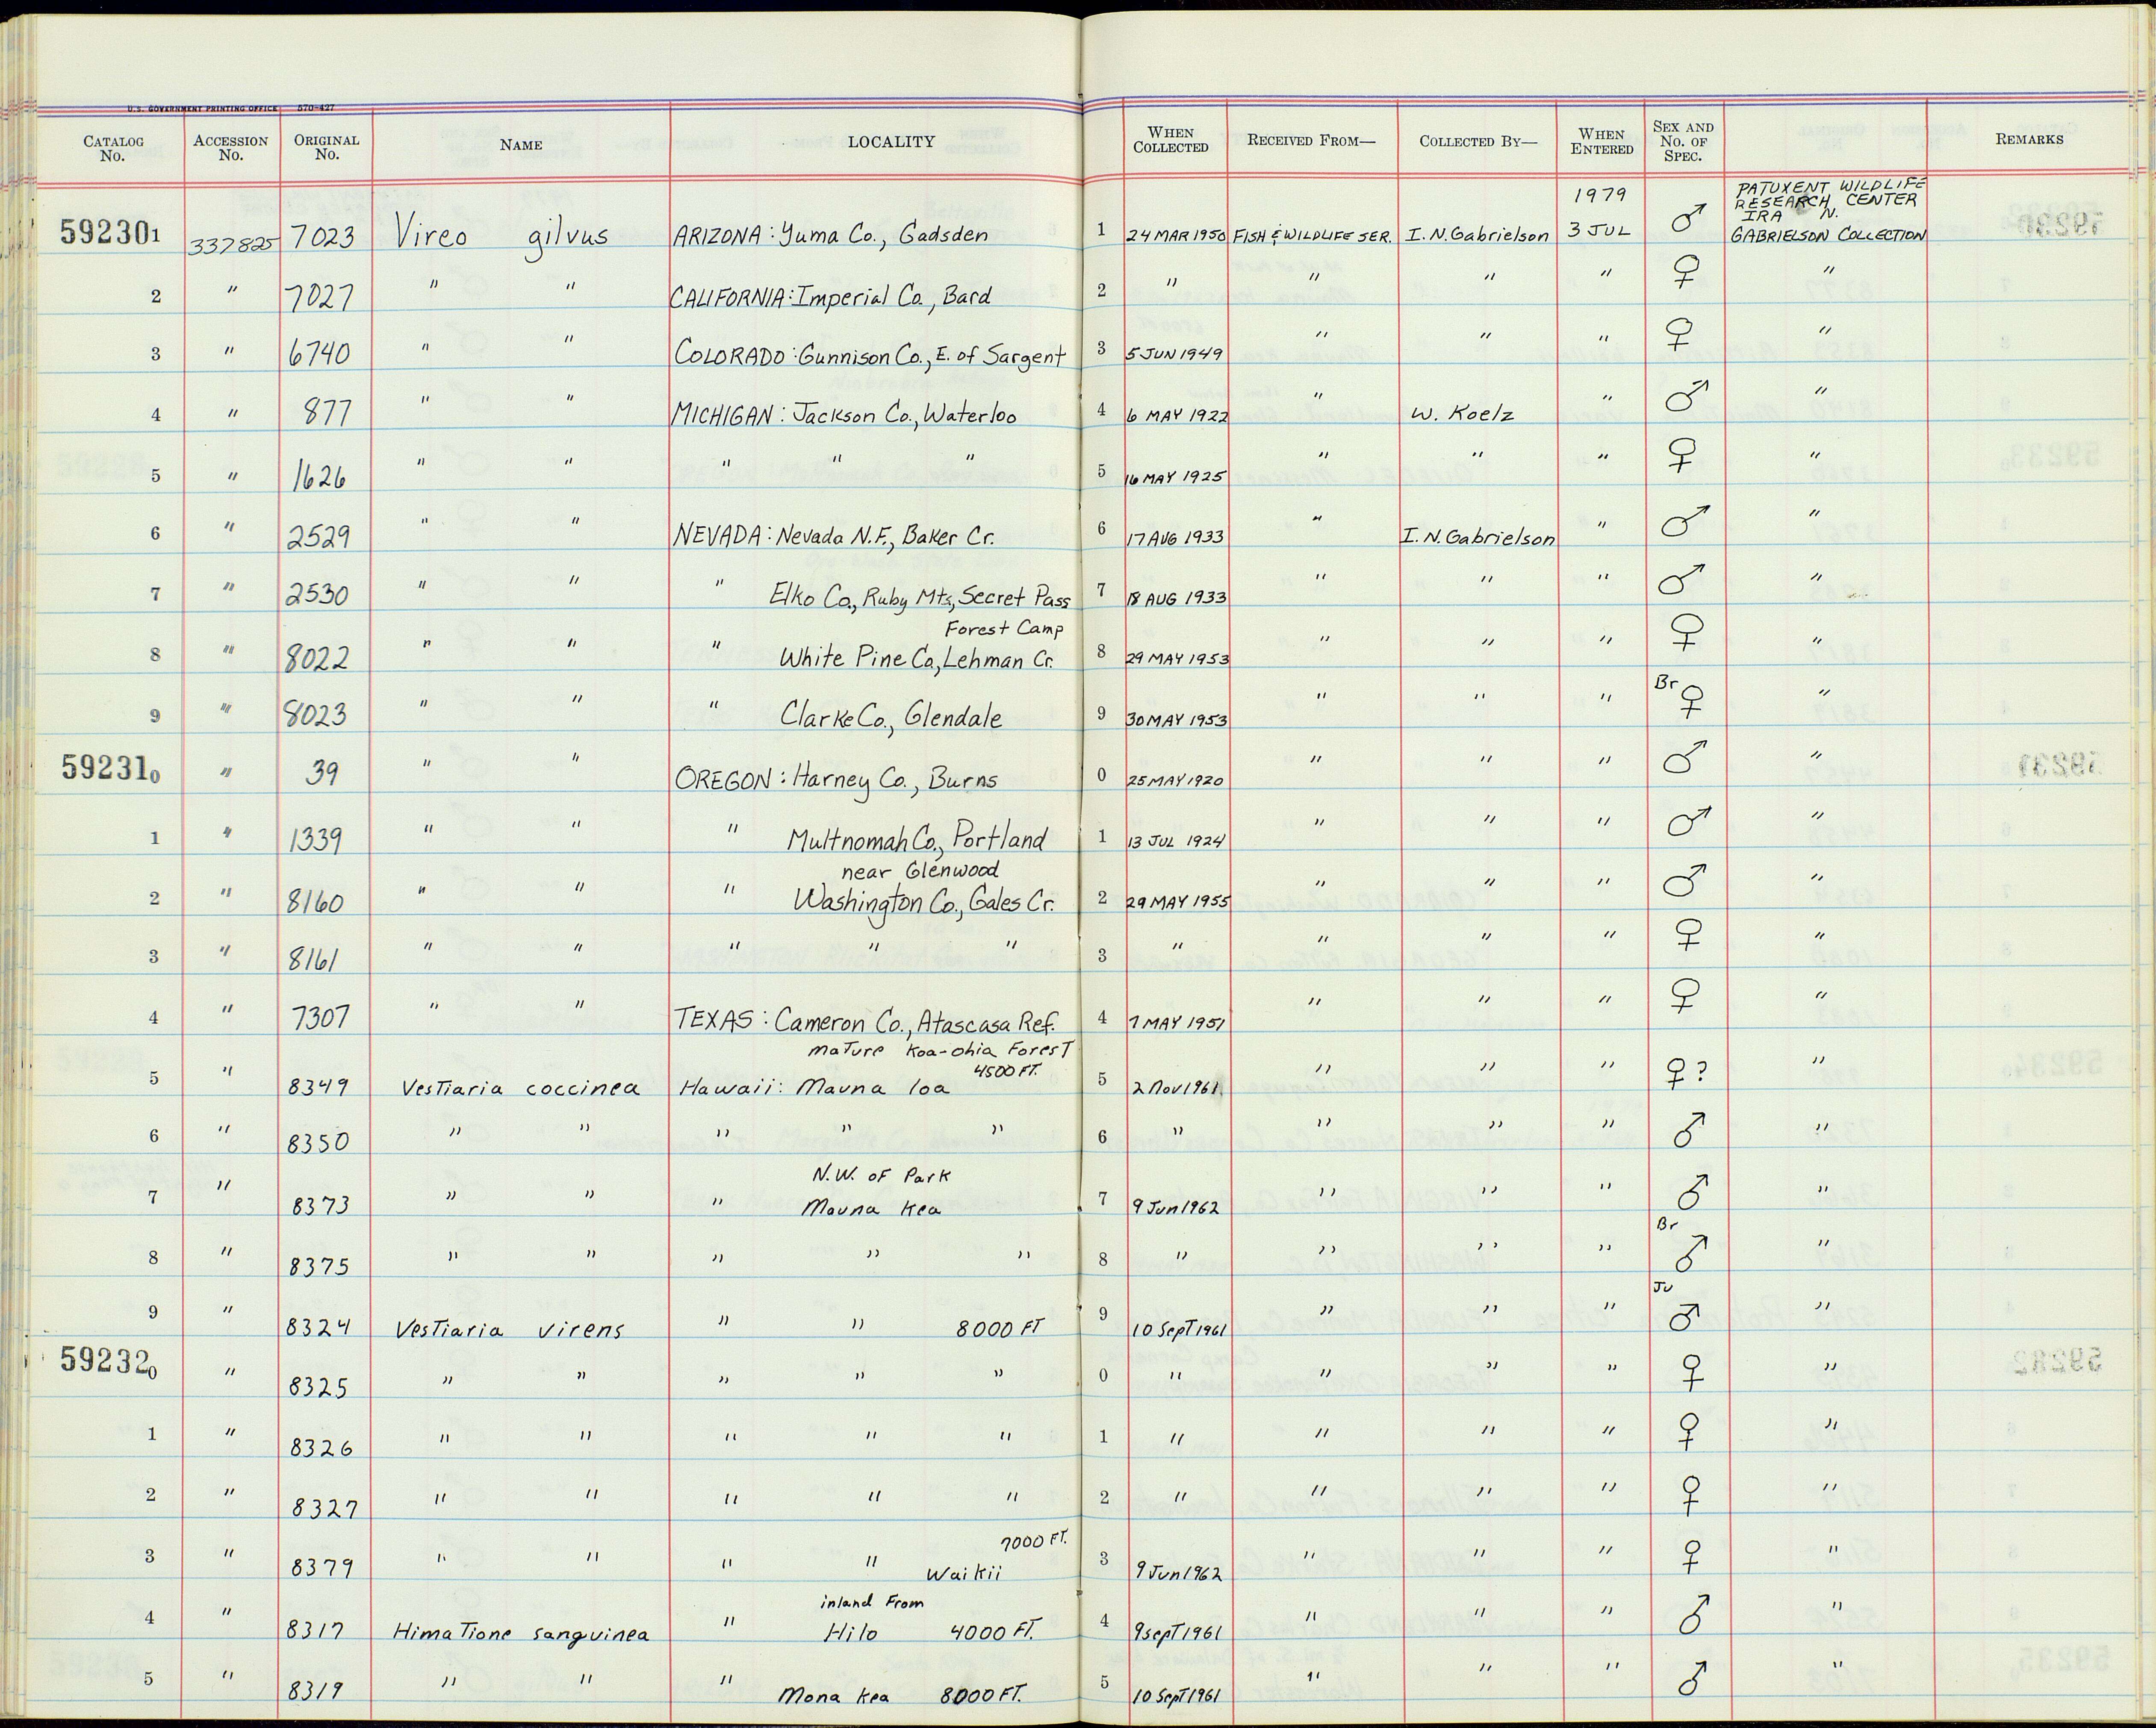 U.S. GOVERNMENT PRINTING OFFICE 570-427
CATALOG No. ACCESSION No. ORIGINAL No. NAME LOCALITY WHEN COLLECTED RECEIVED FROM— COLLECTED BY— WHEN ENTERED SEX AND No. OF SPEC. REMARKS
1979 PATUXENT WILDLIFE RESEARCH CENTER IRA N.
592301 337825 7023 Vireo gilvus ARIZONA: Yuma Co., Gadsden 1 24 MAR 1950 FISH & WILDLIFE SER. I. N. Gabrielson 3 JUL ♂ GABRIELSON COLLECTION
2 " 7027 " " CALIFORNIA: Imperial Co., Bard 2 " " " " ♀ "
3 " 6740 " " COLORADO: Gunnison Co., E. of Sargent 3 5 JUN 1949 " " " ♀ "
4 " 877 " " MICHIGAN: Jackson Co., Waterloo 4 6 MAY 1922 " W. Koelz " ♂ "
5 " 1626 " " " " " 5 16 MAY 1925 " " " ♀ "
6 " 2529 " " NEVADA: Nevada N.F., Baker Cr. 6 17 AUG 1933 " I. N. Gabrielson " ♂ "
7 " 2530 " " " Elko Co., Ruby Mts, Secret Pass 7 18 AUG 1933 " " " ♂ "
Forest Camp
8 " 8022 " " " White Pine Co., Lehman Cr. 8 29 MAY 1953 " " " ♀ "
9 " 8023 " " " Clarke Co., Glendale 9 30 MAY 1953 " " " Br ♀ "
592310 " 39 " " OREGON: Harney Co., Burns 0 25 MAY 1920 " " " ♂ "
1 " 1339 " " " Multnomah Co., Portland 1 13 JUL 1924 " " " ♂ "
near Glenwood
2 " 8160 " " " Washington Co., Gales Cr. 2 29 MAY 1955 " " " ♂ "
3 " 8161 " " " " " 3 " " " " ♀ "
4 " 7307 " " TEXAS: Cameron Co., Atascasa Ref. 4 7 MAY 1951 " " " ♀ "
mature Koa-ohia Forest
4500 FT.
5 " 8349 Vestiaria coccinea Hawaii: Mauna loa 5 2 Nov 1961 " " " ♀? "
6 " 8350 " " " " " 6 " " " " ♂ "
N.W. of Park
7 " 8373 " " " Mauna Kea 7 9 Jun 1962 " " " ♂ "
8 " 8375 " " " " " 8 " " " " Br ♂ "
9 " 8324 Vestiaria virens " " 8000 FT 9 10 Sept 1961 " " " Jv ♂ "
592320 " 8325 " " " " " 0 " " " " ♀ "
1 " 8326 " " " " " 1 " " " " ♀ "
2 " 8327 " " " " " 2 " " " " ♀ "
7000 FT.
3 " 8379 " " " " Waikii 3 9 Jun 1962 " " " ♀ "
inland From
4 " 8317 Himatione sanguinea " Hilo 4000 FT. 4 9 sept 1961 " " " ♂ "
5 " 8319 " " " Mona Kea 8000 FT. 5 10 Sept 1961 " " " ♂ "